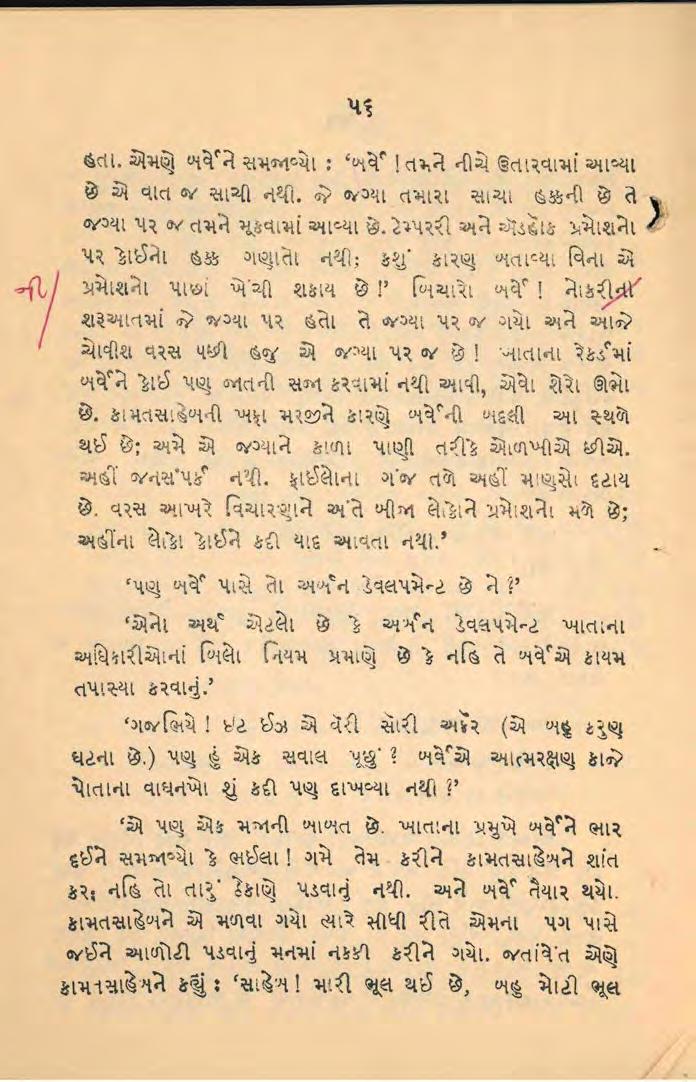 ૫૬
હતા. એમણે બર્વેને સમજાવ્યો : ‘બર્વે ! તમને નીચે ઉતારવામાં આવ્યા
છે એ વાત જ સાચી નથી. જે જગ્યા તમારા સાચા હક્કની છે તે
જગ્યા પર જ તમને મૂકવામાં આવ્યા છે. ટેમ્પરરી અને ઍડહૉક પ્રમોશનો
પર કોઈનો હક્ક ગણાતો નથી; કશું કારણ બતાવ્યા વિના એ
ની/ પ્રમોશનો પાછાં ખેંચી શકાય છે !’ બિચારો બર્વે ! નોકરીના
શરૂઆતમાં જે જગ્યા પર હતો તે જગ્યા પર જ ગયો અને આજે
ચોવીશ વરસ પછી હજુ એ જગ્યા પર જ છે ! ખાતાના રેકર્ડમાં
બર્વેને કોઈ પણ જાતની સજા કરવામાં નથી આવી, એવો શેરો ઊભો
છે. કામતસાહેબની ખફા મરજીને કારણે બર્વેની બદલી આ સ્થળે
થઈ છે; અમે એ જગ્યાને કાળા પાણી તરીકે ઓળખીએ છીએ.
અહીં જનસંપર્ક નથી. ફાઈલોના ગંજ તળે અહીં માણસો દટાય
છે. વરસ આખરે વિચારણાને અંતે બીજા લોકોને પ્રમોશનો મળે છે;
અહીંના લોકો કોઈને કદી યાદ આવતા નથી.’
‘પણ બર્વે પાસે તો અર્બન ડેવલપમેન્ટ છે ને ?’
‘એનો અર્થ એટલો છે કે અર્બન ડેવલપમેન્ટ ખાતાના
અધિકારીઓનાં બિલો નિયમ પ્રમાણે છે કે નહિ તે બર્વેએ કાયમ
તપાસ્યા કરવાનું.’
‘ગજબિયે ! ઇટ ઈઝ એ વૅરી સૉરી અફૅર (એ બહુ કરુણ
ઘટના છે.) પણ હું એક સવાલ પૂછું ? બર્વેએ આત્મરક્ષણ કાજે
પોતાના વાઘનખો શું કદી પણ દાખવ્યા નથી ?’
‘એ પણ એક મજાની બાબત છે. ખાતાના પ્રમુખે બર્વેને ભાર
દઈને સમજાવ્યો કે ભઈલા ! ગમે તેમ કરીને કામતસાહેબને શાંત
કર; નહિ તો તારું ઠેકાણે પડવાનું નથી. અને બર્વે તૈયાર થયો.
કામતસાહેબને એ મળવા ગયો ત્યારે સીધી રીતે એમના પગ પાસે
જઈને આળોટી પડવાનું મનમાં નક્કી કરીને ગયો. જતાંવેંત એણે
કામતસાહેબને કહ્યું : ‘સાહેબ ! મારી ભૂલ થઈ છે, બહુ મોટી ભૂલ